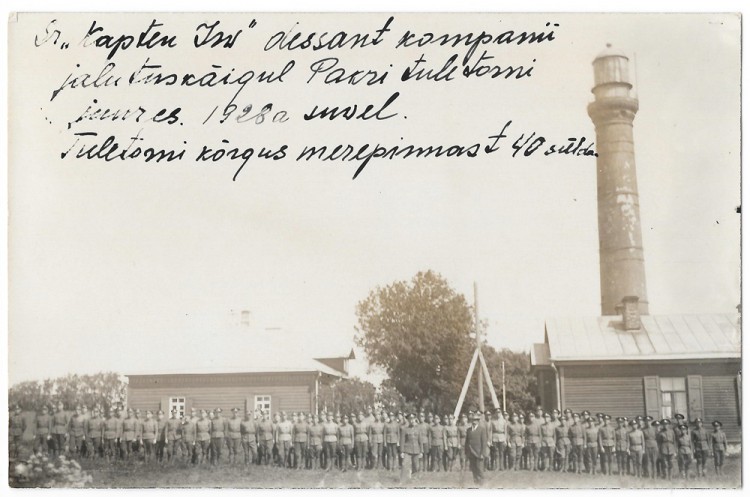 Sr. „Kapten Irv" dessant kompanii
jalutuskäigul Pakri tuletorni
juures. 1928 a suvel.
Tuletorni kõrgus merepinnast 40 sülda.